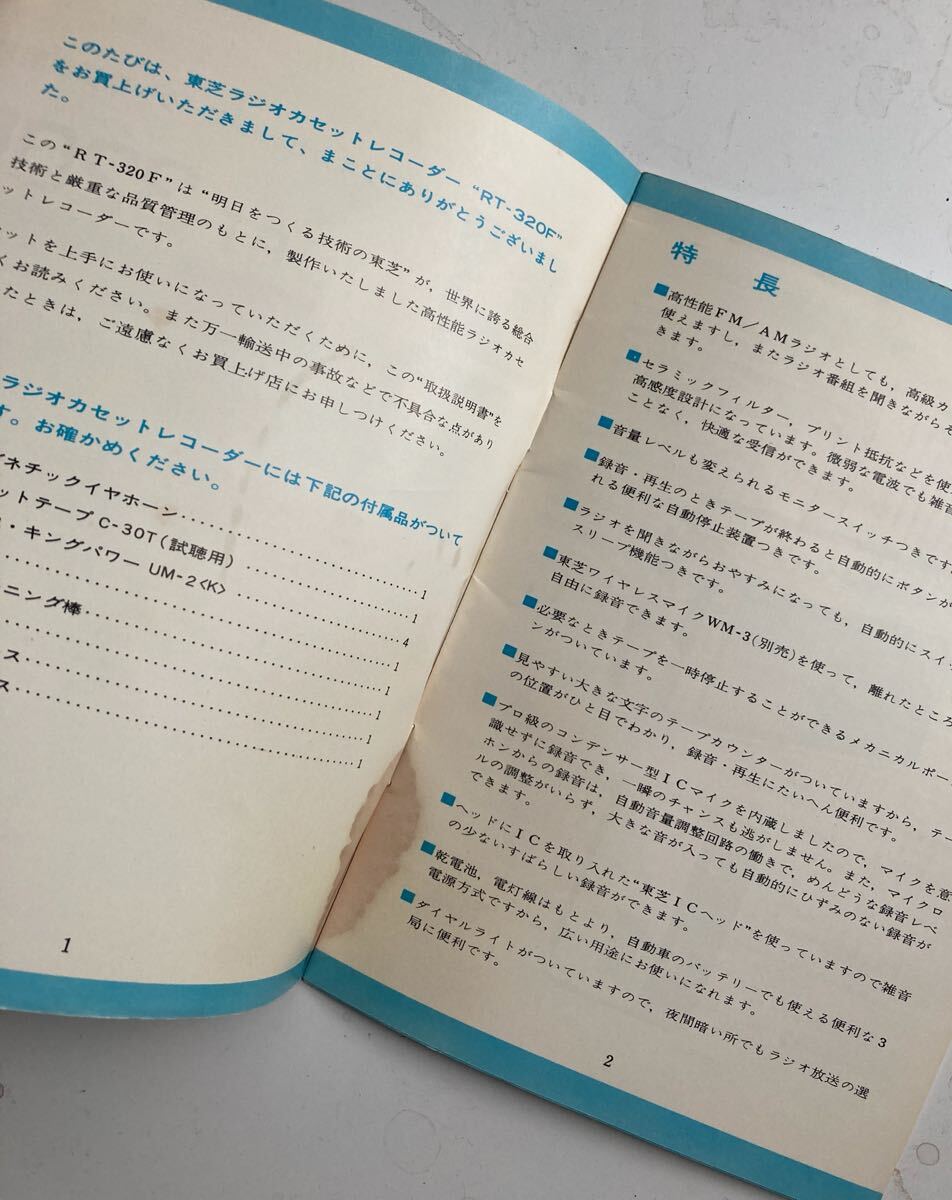 このたびは、東芝ラジオカセットレコーダー“RT-320F”
をお買上げいただきまして、まことにありがとうございまし
た。
この“RT-320F”は“明日をつくる技術の東芝”が，世界に誇る総合
技術と厳重な品質管理のもとに，製作いたしました高性能ラジオカセ
ットレコーダーです。
ットを上手にお使いになっていただくために，この“取扱説明書”を
くお読みください。また万一輸送中の事故などで不具合な点があり
たときは，ご遠慮なくお買上げ店にお申しつけください。
ラジオカセットレコーダーには下記の付属品がついて
す。お確かめください。
ネチックイヤホーン……………………1
ットテープC-30T(試聴用)……………………1
・キングパワー UM-2〈K〉……………………4
……………………1
ニング棒……………………1
ス……………………1
ス……………………1
1
特長
■高性能FM／AMラジオとしても，高級カ
使えますし，またラジオ番組を聞きながらそ
きます。
■セラミックフィルター，プリント抵抗などを使
高感度設計になっています。微弱な電波でも雑音
ことなく，快適な受信ができます。
■音量レベルも変えられるモニタースイッチつきです
■録音・再生のときテープが終わると自動的にボタンが
れる便利な自動停止装置つきです。
■ラジオを聞きながらおやすみになっても，自動的にスイッ
スリープ機能つきです。
■東芝ワイヤレスマイクWM-3(別売)を使って，離れたところ
自由に録音できます。
■必要なときテープを一時停止することができるメカニカルポー
ンがついています。
■見やすい大きな文字のテープカウンターがついていますから，テー
の位置がひと目でわかり，録音・再生にたいへん便利です。
■プロ級のコンデンサー型ICマイクを内蔵しましたので，マイクを意
識せずに録音でき，一瞬のチャンスも逃がしません。また，マイクロ
ホンからの録音は，自動音量調整回路の働きで，めんどうな録音レベ
ルの調整がいらず，大きな音が入っても自動的にひずみのない録音が
できます。
■ヘッドにICを取り入れた“東芝ICヘッド”を使っていますので雑音
の少ないすばらしい録音ができます。
■乾電池，電灯線はもとより，自動車のバッテリーでも使える便利な3
電源方式ですから，広い用途にお使いになれます。
■ダイヤルライトがついていますので，夜間暗い所でもラジオ放送の選
局に便利です。
2